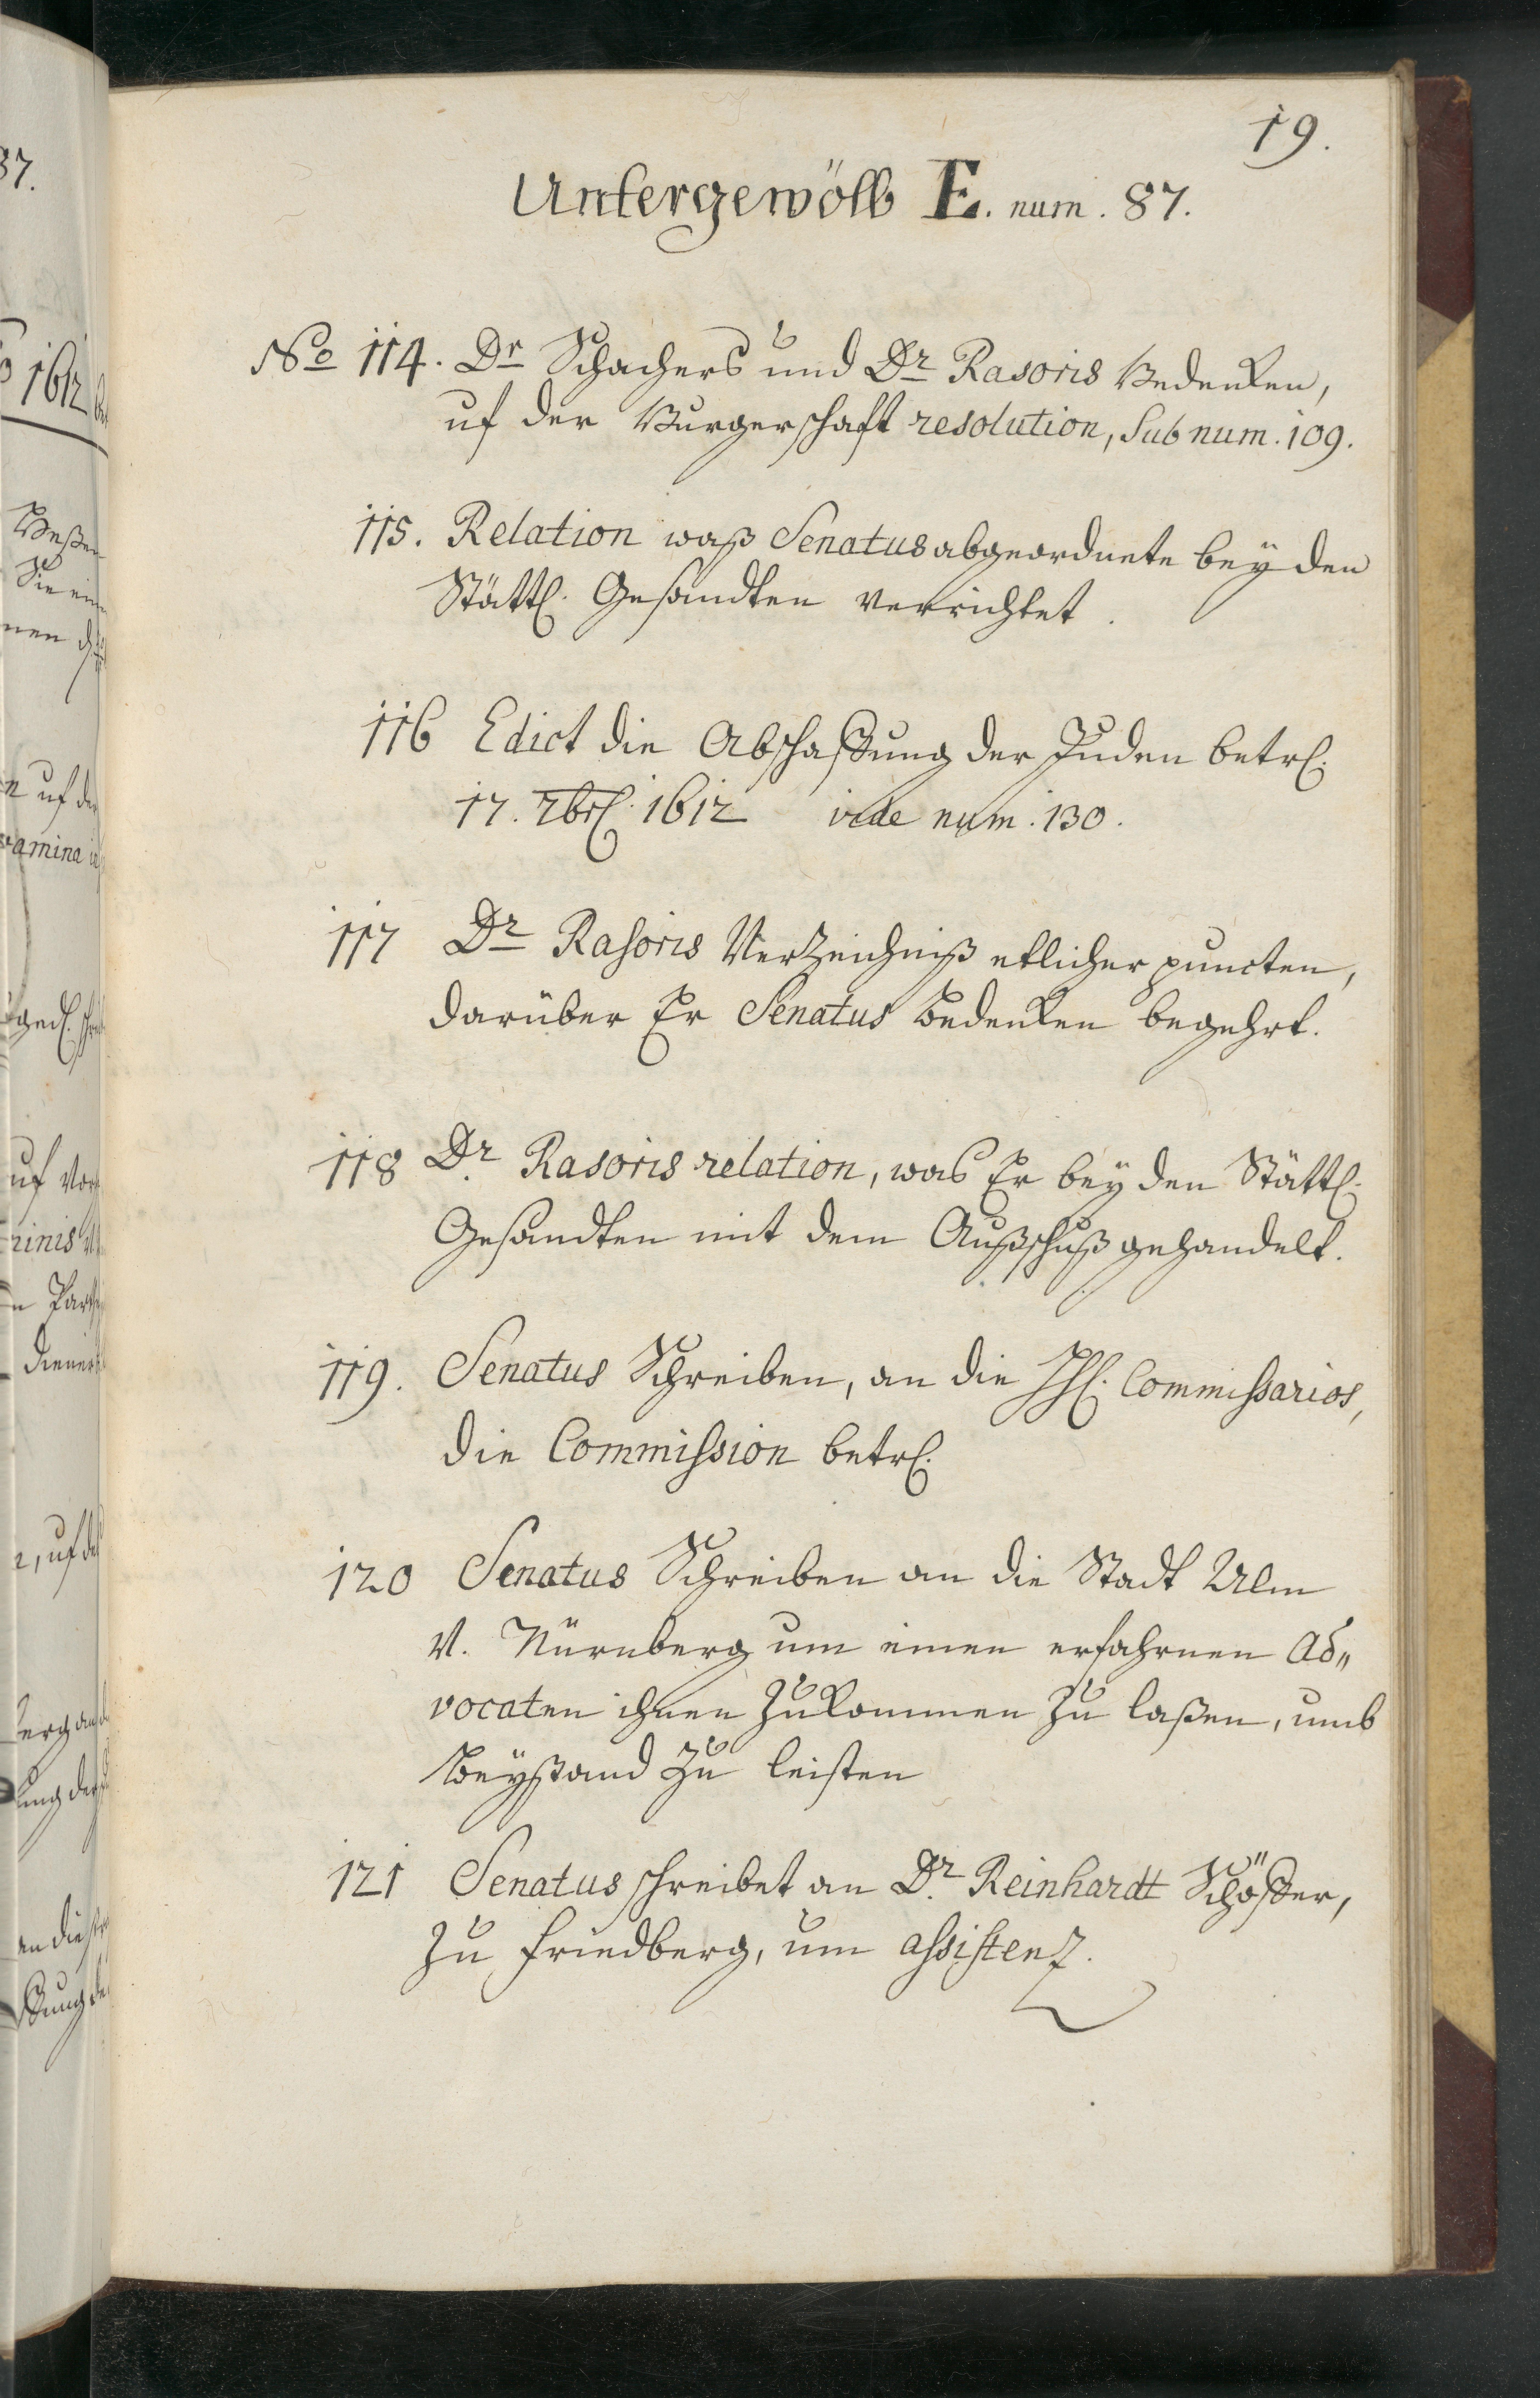 19.
Untergewölb E. num. 87.
No 114. Dr Schachers und Dr Rasoris Bedencken,
uf der Burgerschaft resolution, Sub num. 109.
115. Relation waß Senatus abgeordnete bey den
Stätt. Gesandten verrichtet.
116 Edict die Abschaffung der Juden betr.
17. 7br. 1612 vide num. 130.
117 Dr Rasoris Verzeichniß etlicher puncten,
darüber Er Senatus Bedencken begehrt.
118 Dr Rasoris relation, was Er bey den Stätt.
Gesandten mit dem Außschuß gehandelt.
119. Senatus Schreiben, an die HH. Commissarios,
die Commission betr.
120 Senatus Schreiben an die Stadt Ulm
V. Nürnberg um einen erfahrnen Ad„
vocaten ihnen zukommen zu laßen, umb
Beystand zu leisten
121 Senatus schreibet an Dr Reinhardt Schöffer,
zu Friedberg, um assistenz.